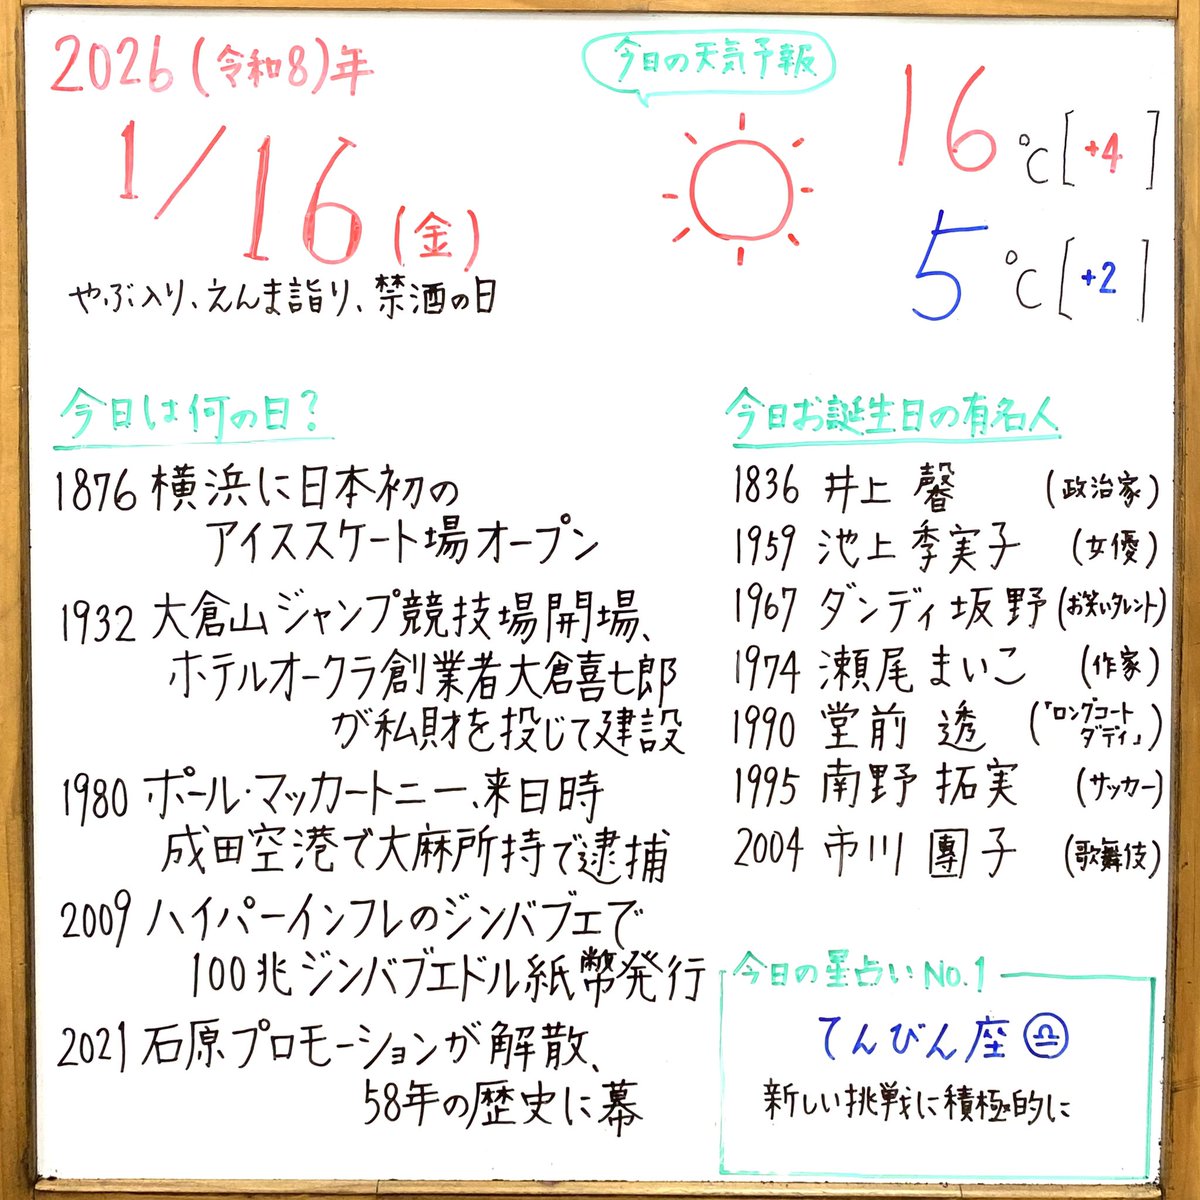 2026(令和8)年
1/16(金)
やぶ入り、えんま詣り、禁酒の日
今日の天気予報
16℃[+4]
5℃[+2]
今日は何の日?
1876 横浜に日本初の
アイススケート場オープン
1932 大倉山ジャンプ競技場開場、
ホテルオークラ創業者大倉喜七郎
が私財を投じて建設
1980 ポール・マッカートニー、来日時
成田空港で大麻所持で逮捕
2009 ハイパーインフレのジンバブエで
100兆ジンバブエドル紙幣発行
2021 石原プロモーションが解散、
58年の歴史に幕
今日お誕生日の有名人
1836 井上 馨 (政治家)
1959 池上季実子 (女優)
1967 ダンディ坂野(お笑いタレント)
1974 瀬尾まいこ (作家)
1990 堂前 透 (「ロングコート
ダディ」)
1995 南野 拓実 (サッカー)
2004 市川 團子 (歌舞伎)
今日の星占い No.1
てんびん座♎
新しい挑戦に積極的に